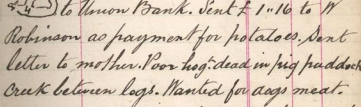 to Union Bank. Sent £1"16 to W
Robinson as payment for potatoes. Sent
letter to mother. Poor hog dead in pig paddock
creek between logs. Wanted for dogs meat.